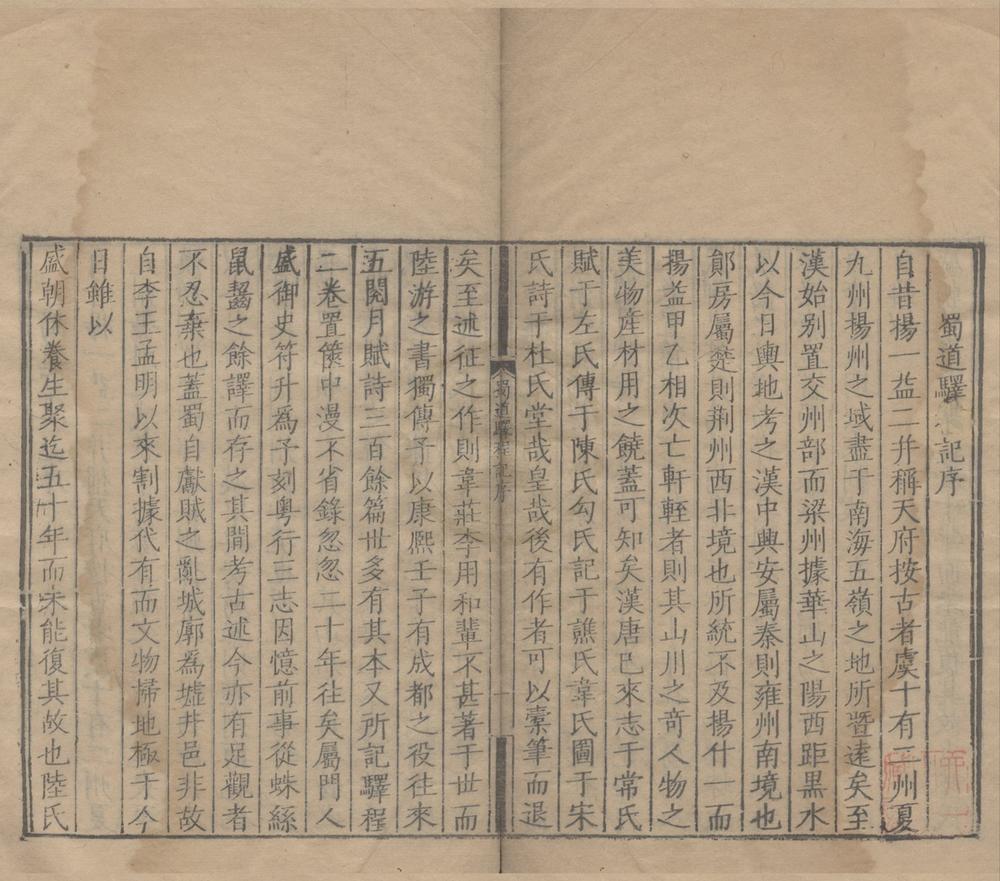 蜀道驛記序
自昔揚一益二幷稱天府按古者虞十有二州夏
九州揚州之域盡于南海五嶺之地所曁遠矣至
漢始別置交州部而梁州據華山之陽西距黑水
以今日輿地考之漢中興安屬秦則雍州南境也
鄖房屬楚則荆州西非境也所統不及揚什一而
揚益甲乙相次亡軒輊者則其山川之奇人物之
美物產材用之饒蓋可知矣漢唐已來志于常氏
賦于左氏傳于陳氏勾氏記于譙氏韋氏圖于宋
氏詩于杜氏堂哉皇哉後有作者可以橐筆而退
蜀道驛程記序
一
矣至述征之作則韋莊李用和輩不甚著于世而
陸游之書獨傳予以康熙壬子有成都之役往來
五閱月賦詩三百餘篇世多有其本又所記驛程
二卷置篋中漫不省錄忽忽二十年往矣屬門人
盛御史符升爲予刻粵行三志因憶前事從蛛絲
鼠齧之餘譯而存之其閒考古述今亦有足觀者
不忍棄也蓋蜀自獻賊之亂城郭爲墟井邑非故
自李王孟明以來割據代有而文物掃地極于今
日雖以
盛朝休養生聚迄五十年而未能復其故也陸氏